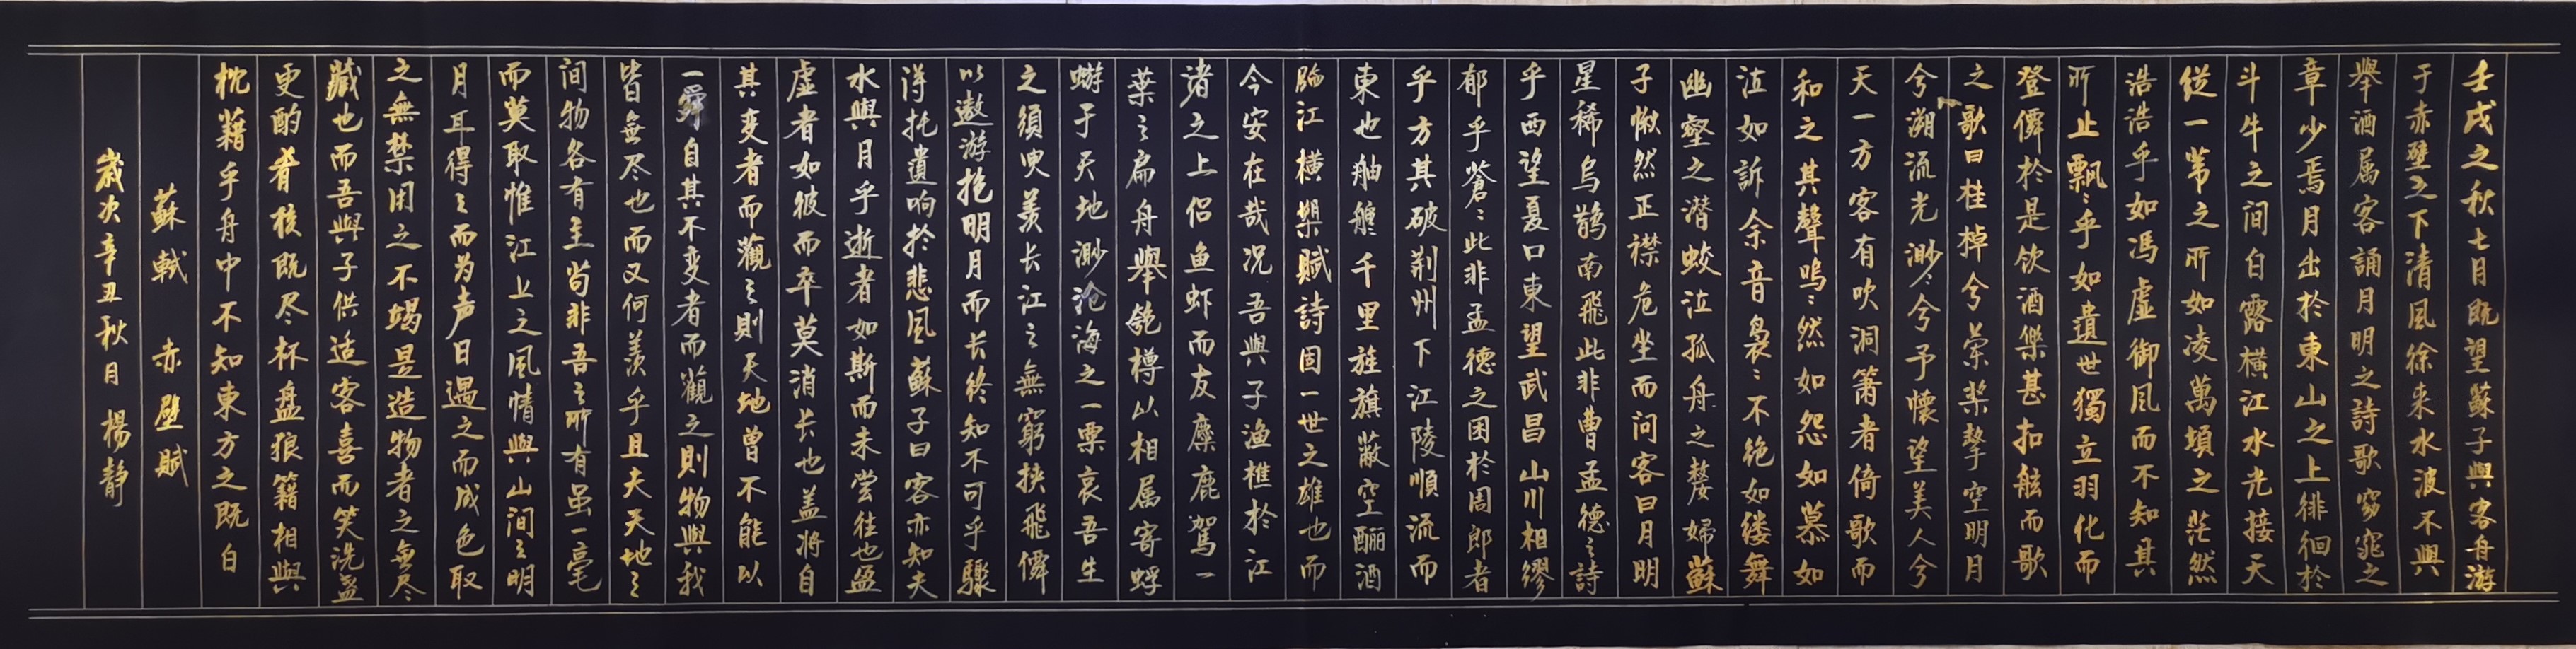 壬戌之秋七月既望蘇子與客舟游
于赤壁之下清風徐来水波不興
舉酒属客誦月明之詩歌窈窕之
章少焉月出於東山之上徘徊於
斗牛之间白露横江水光接天
纵一苇之所如凌萬頃之茫然
浩浩乎如馮虚御风而不知其
所止飘飘乎如遗世獨立羽化而
登僊於是饮酒樂甚扣舷而歌
之歌曰桂棹兮兮蘭槳擊空明月
兮溯流光渺渺兮予懷望美人兮
天一方客有吹洞箫者倚歌而
和之其聲嗚嗚然如怨如慕如
泣如訴余音袅袅不绝如缕舞
幽壑之潜蛟泣孤舟之嫠婦蘇
子愀然正襟危坐而问客曰月明
星稀烏鹊南飛此非曹孟德之詩
乎西望夏口東望武昌山川相缪
郁乎蒼蒼此非孟德之困於周郎者
乎方其破荆州下江陵順流而
東也舳舻千里旌旗蔽空酾酒
臨江横槊賦詩固一世之雄也而
今安在哉况吾與子渔樵於江
渚之上侣鱼虾而友麋鹿駕一
葉之扁舟舉匏樽以相属寄蜉
蝣于天地渺沧海之一粟哀吾生
之須臾羡长江之無窮挟飛僊
以遨游抱明月而长终知不可乎驟
得托遺响於悲风蘇子曰客亦知夫
水與月乎逝者如斯而未尝往也盈
虚者如彼而卒莫消长也盖将自
其变者而觀之則天地曾不能以
一舜自其不变者而觀之則物與我
皆無尽也而又何羡乎且夫天地之
间物各有主苟非吾之所有虽一毫
而莫取惟江上之风情與山间之明
月耳得之而为声目遇之而成色取
之無禁用之不竭是造物者之無尽
藏也而吾與子供适客喜而笑洗盏
更酌肴核既尽杯盘狼籍相與
枕藉乎舟中不知東方之既白
蘇軾 赤壁賦
歲次辛丑秋月楊静